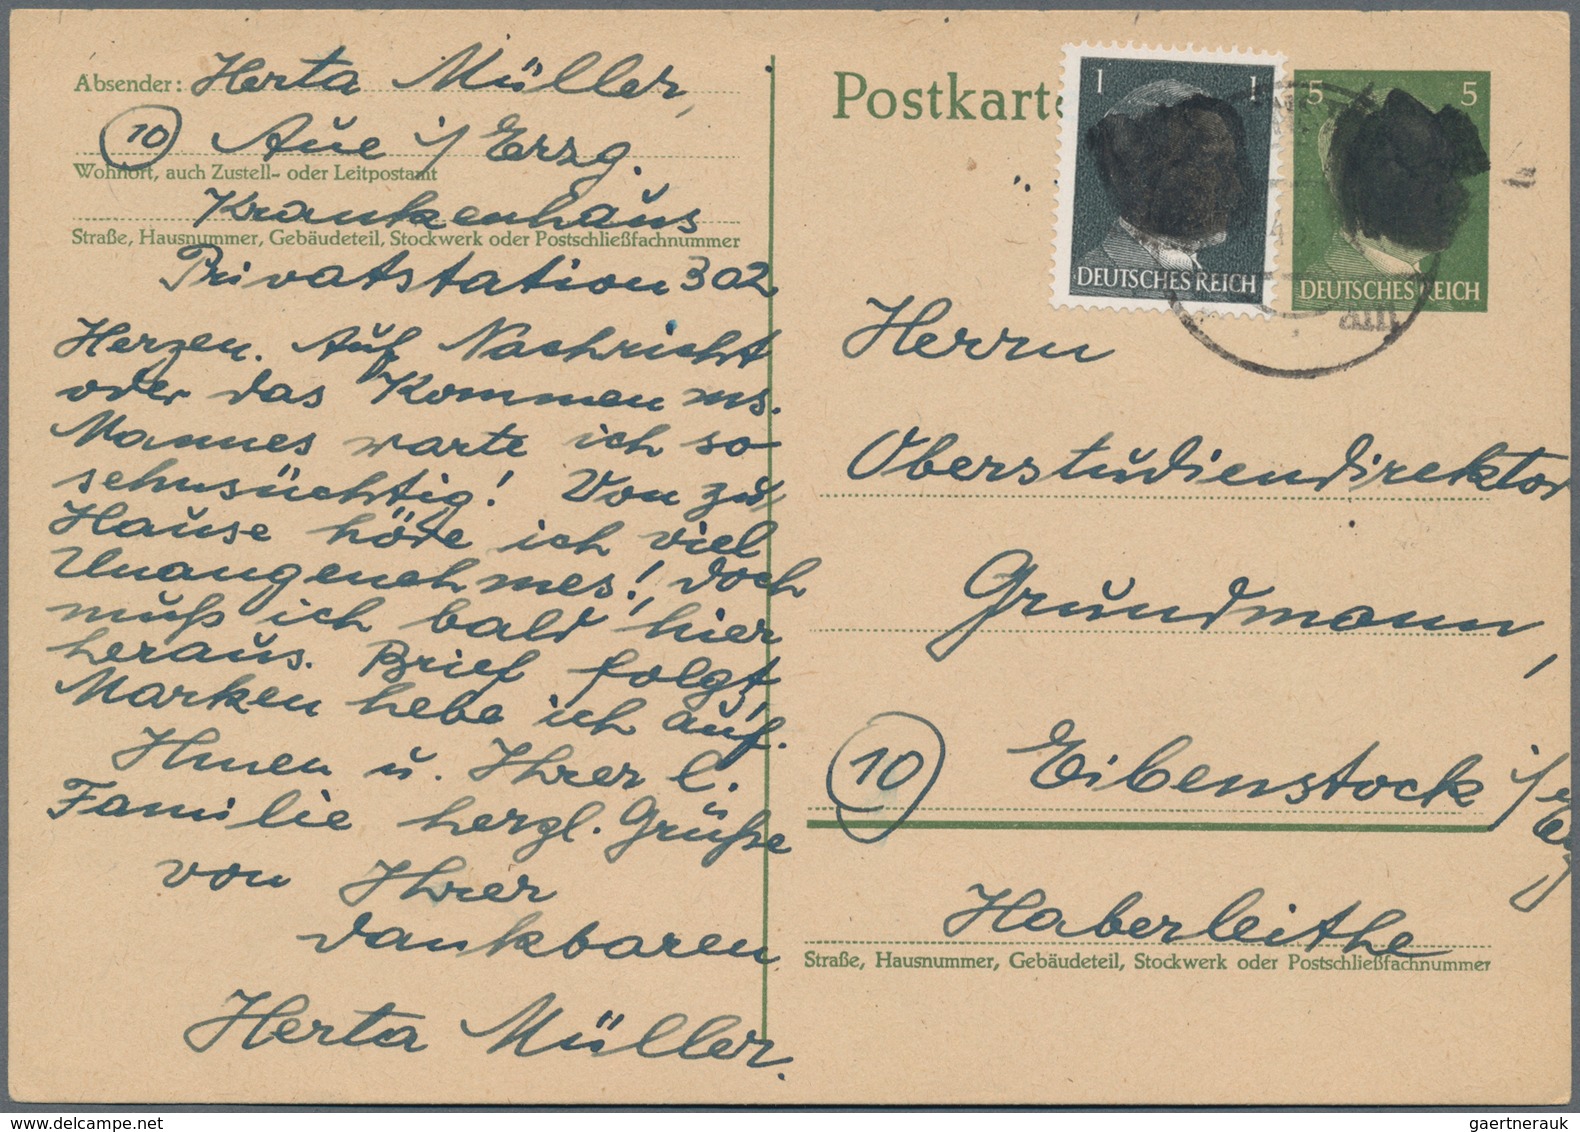 Absender: Herta Müller,
(10) Aue i/Erzg.
Wohnort, auch Zustell- oder Leitpostamt
Krankenhaus
Straße, Hausnummer, Gebäudeteil, Stockwerk oder Postschließfachnummer
Privatstation 302
Herzen. Auf Nachricht
oder das Kommen ms.
Mannes warte ich so
sehnsüchtig! Von zu
Hause höre ich viel
Unangenehmes!, doch
muß ich bald hier
heraus. Brief folgt,
Marken hebe ich auf.
Ihnen u. Ihrer l.
Familie herzl. Grüße
von Ihrer
dankbaren
Herta Müller.
Postkarte
1 1
DEUTSCHES REICH
5 5
DEUTSCHES REICH
Herrn
Oberstudiendirektor
Grundmann,
(10) Eibenstock i/
Haberleithe
Straße, Hausnummer, Gebäudeteil, Stockwerk oder Postschließfachnummer
gaertnerauk @ www.delcampe.net